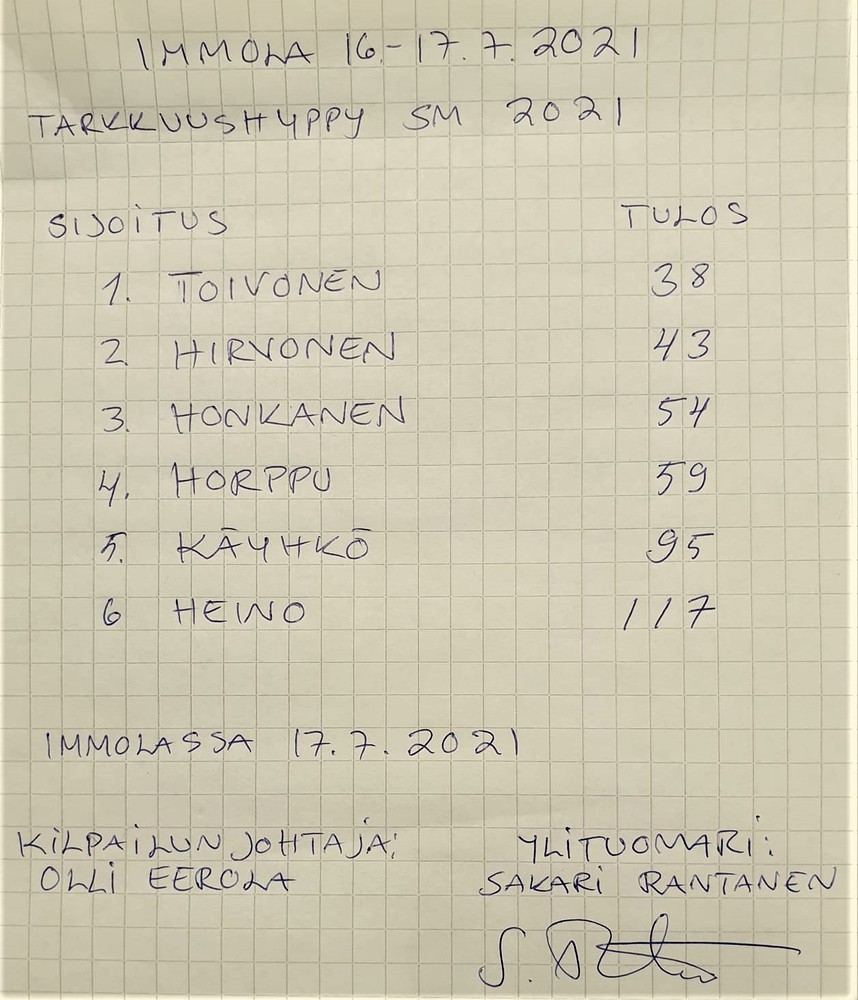 IMMOLA 16.-17.7.2021
TARKKUUSHYPPY SM 2021
SIJOITUS TULOS
1. TOIVONEN 38
2. HIRVONEN 43
3. HONKANEN 54
4. HORPPU 59
5. KÄYHKÖ 95
6 HEINO 117
IMMOLASSA 17.7.2021
KILPAILUN JOHTAJA: YLITUOMARI:
OLLI EEROLA SAKARI RANTANEN
S.